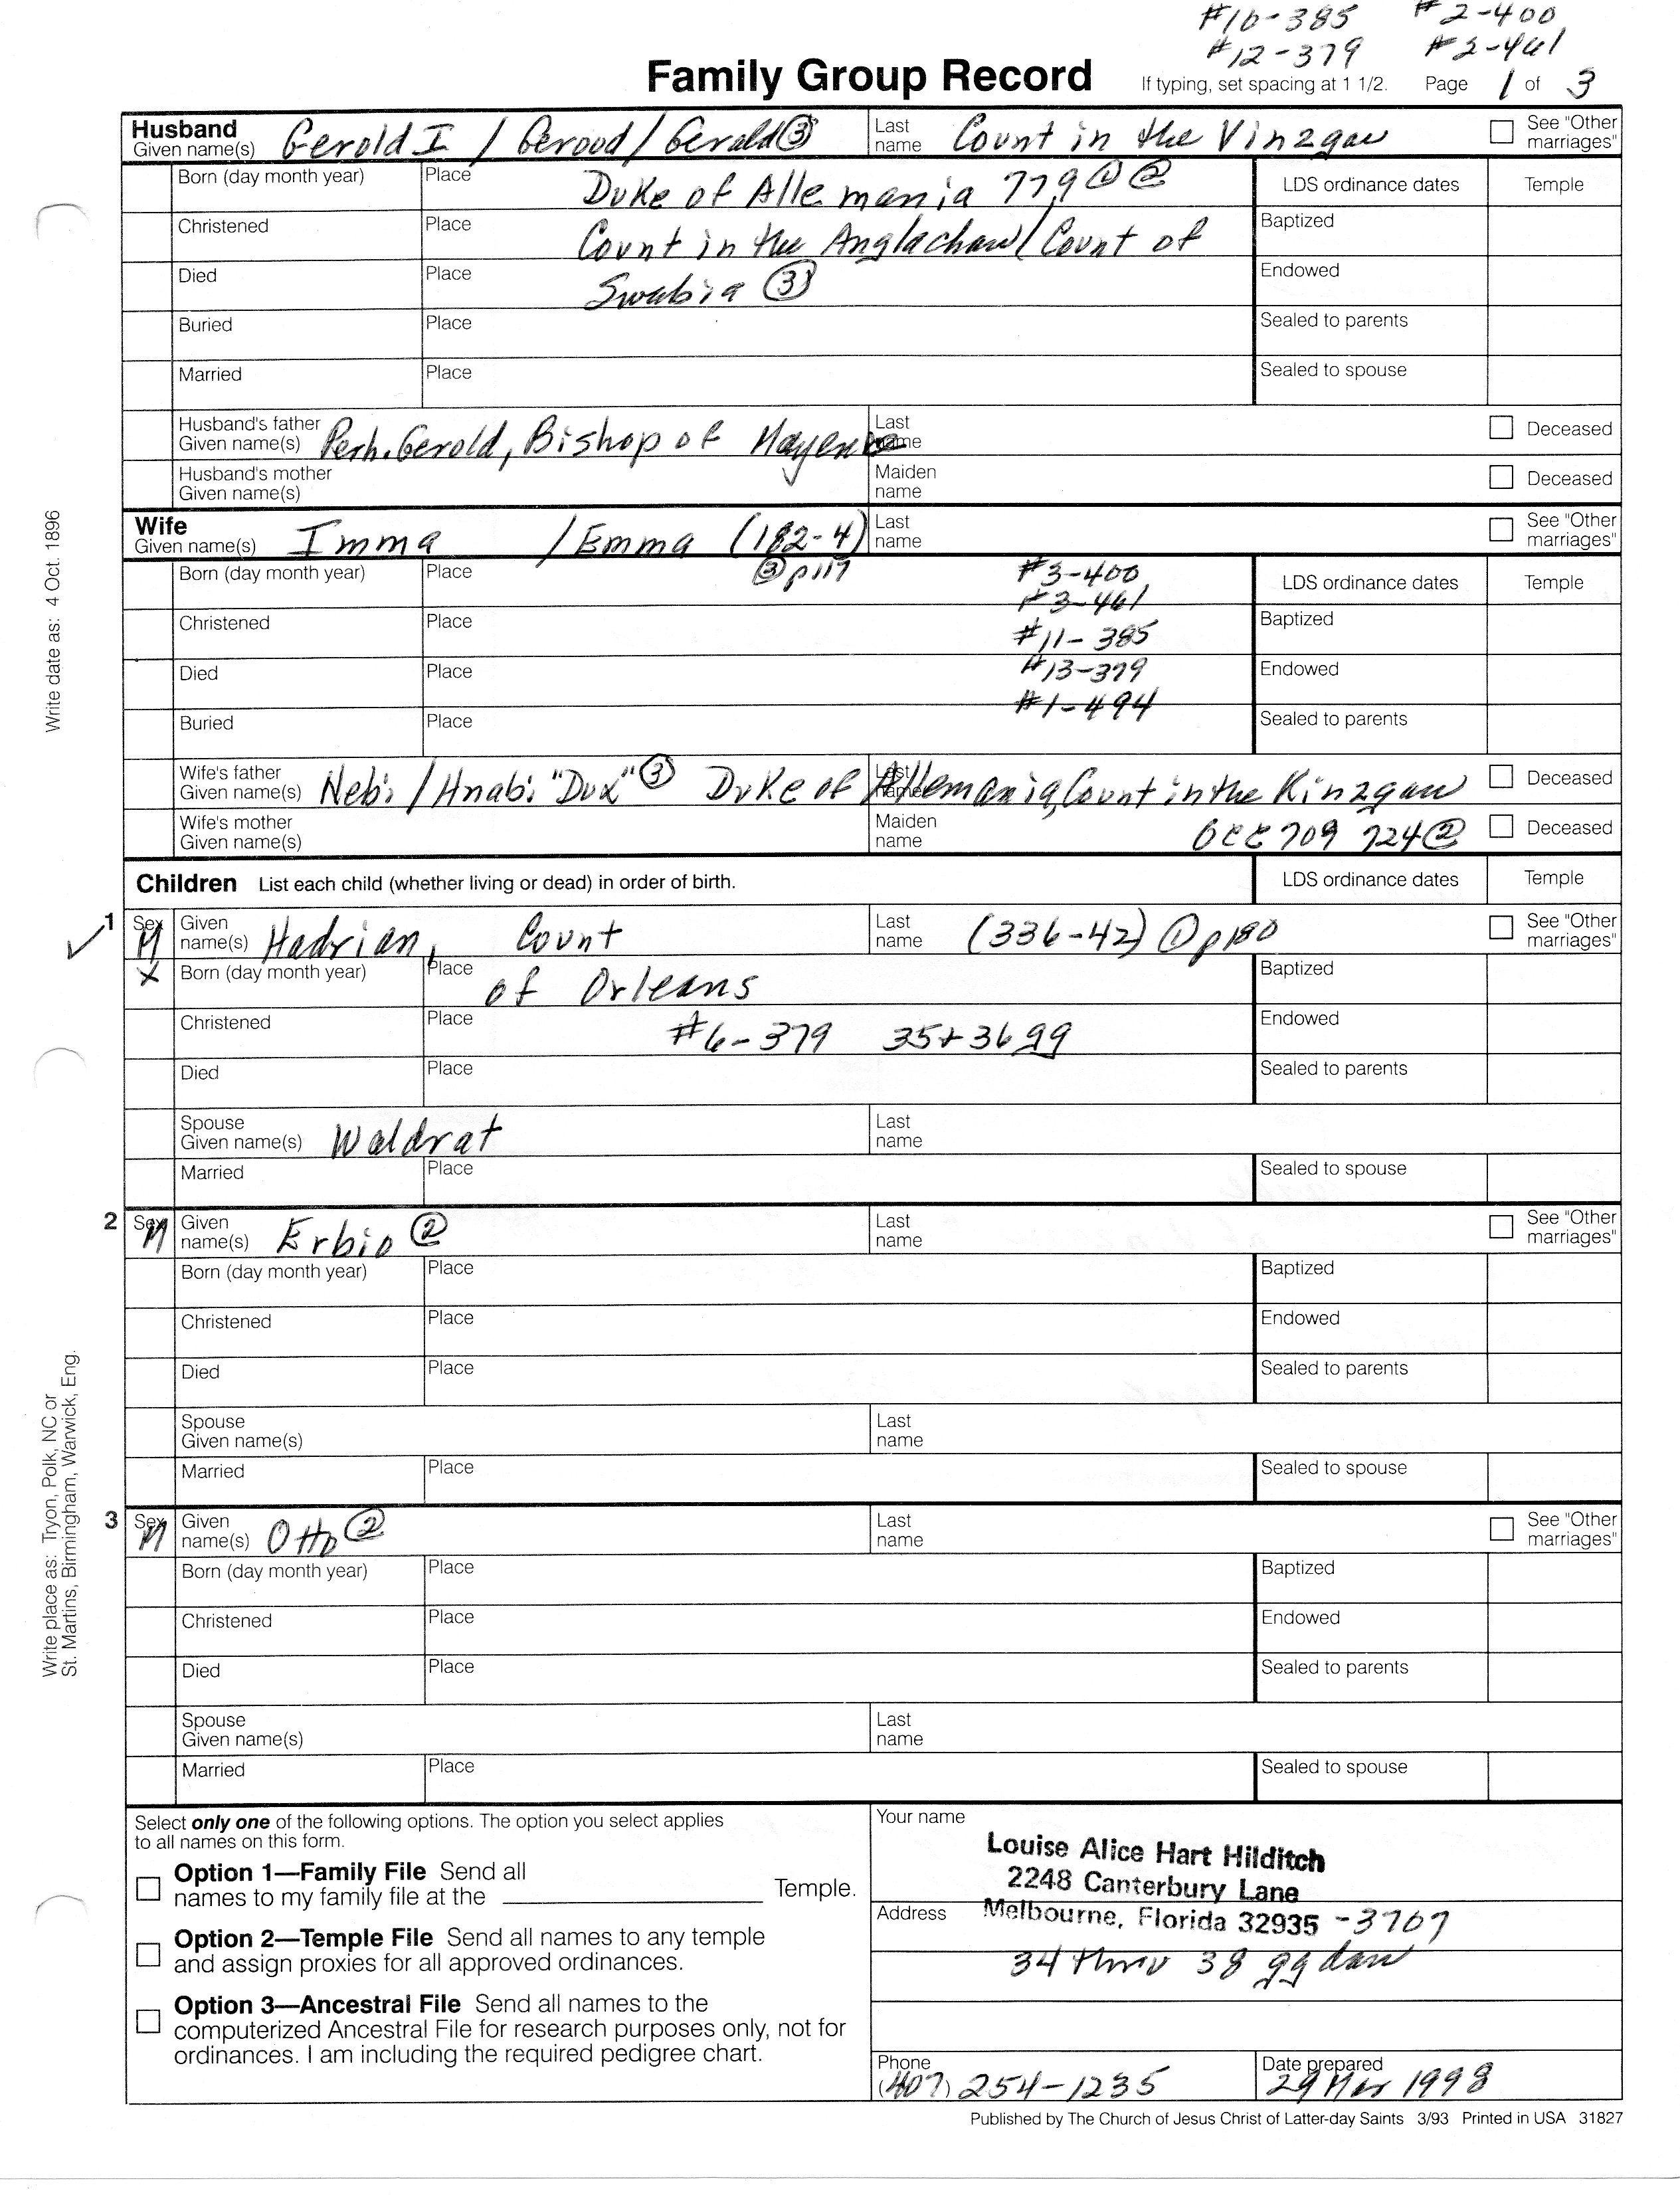 #10-385 #2-400
#12-379 #2-461
Family Group Record If typing, set spacing at 1 1/2. Page 1 of 3
Husband Given name(s) Gerold I / Gerood / Gerald ③ Last name Count in the Vinzgau See "Other marriages"
Born (day month year) Place Duke of Allemania 779 ① ② LDS ordinance dates Temple
Christened Place Count in the Anglachau / Count of Baptized
Died Place Swabia ③ Endowed
Buried Place Sealed to parents
Married Place Sealed to spouse
Husband's father Given name(s) Perh. Gerold, Bishop of Mayence Last name Deceased
Husband's mother Given name(s) Maiden name Deceased
Wife Given name(s) Imma / Emma (182-4) Last name See "Other marriages"
Born (day month year) Place ③ p117 #3-400 LDS ordinance dates Temple
#3-461
Christened Place #11-385 Baptized
Died Place #13-379 Endowed
#1-494
Buried Place Sealed to parents
Wife's father Given name(s) Nebi / Hnabi "Dux" ③ Duke of Allemania, Count in the Kinzgau Last name Deceased
Wife's mother Given name(s) Maiden name occ 709 724 ② Deceased
Children List each child (whether living or dead) in order of birth. LDS ordinance dates Temple
1 Sex M Given name(s) Hadrian, Count Last name (336-42) ① p180 See "Other marriages"
X Born (day month year) Place of Orleans Baptized
Christened Place #6-379 35+36 gg Endowed
Died Place Sealed to parents
Spouse Given name(s) Waldrat Last name
Married Place Sealed to spouse
2 Sex M Given name(s) Erbio ② Last name See "Other marriages"
Born (day month year) Place Baptized
Christened Place Endowed
Died Place Sealed to parents
Spouse Given name(s) Last name
Married Place Sealed to spouse
3 Sex M Given name(s) Otto ② Last name See "Other marriages"
Born (day month year) Place Baptized
Christened Place Endowed
Died Place Sealed to parents
Spouse Given name(s) Last name
Married Place Sealed to spouse
Select only one of the following options. The option you select applies
to all names on this form.
Option 1—Family File Send all
names to my family file at the Temple.
Option 2—Temple File Send all names to any temple
and assign proxies for all approved ordinances.
Option 3—Ancestral File Send all names to the
computerized Ancestral File for research purposes only, not for
ordinances. I am including the required pedigree chart.
Your name
Louise Alice Hart Hilditch
2248 Canterbury Lane
Address Melbourne, Florida 32935 -3707
34 thru 38 gg dau
Phone (407) 254-1235 Date prepared 29 Mar 1998
Published by The Church of Jesus Christ of Latter-day Saints 3/93 Printed in USA 31827
Write date as: 4 Oct. 1896
Write place as: Tryon, Polk, NC or
St. Martins, Birmingham, Warwick, Eng.